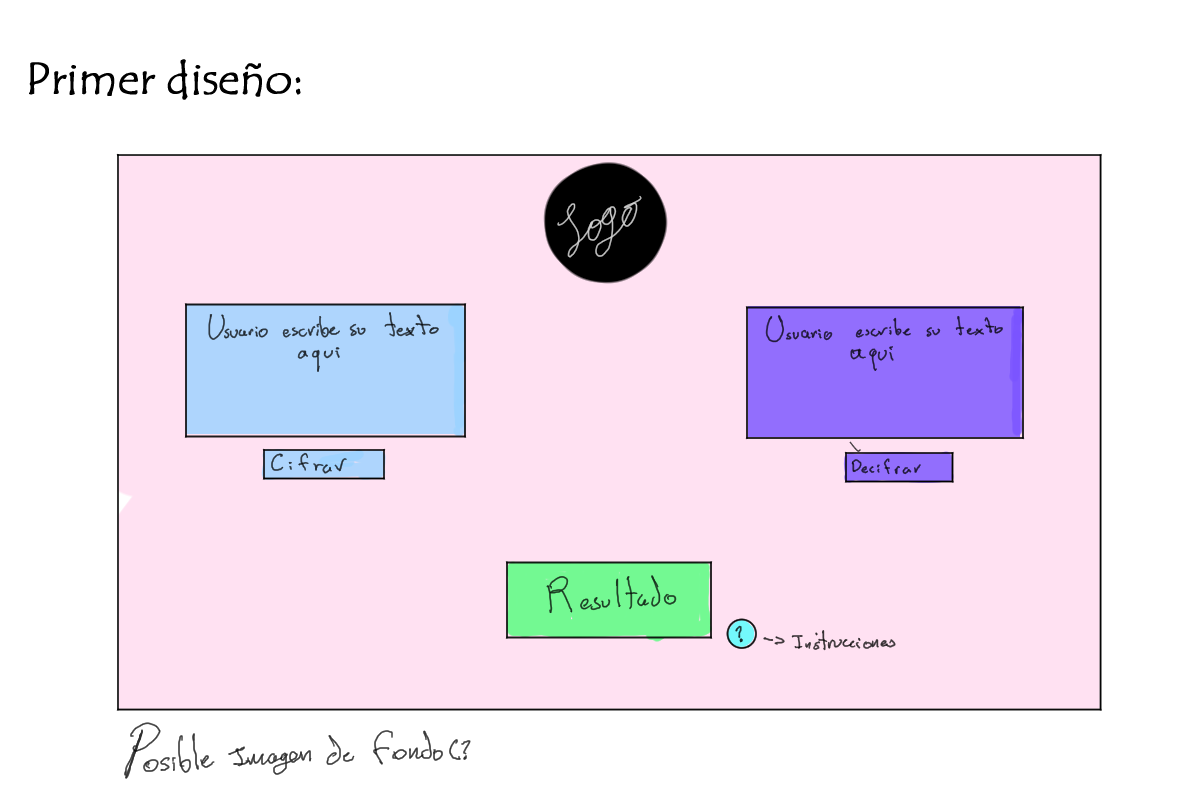 Primer diseño:
Logo
Usuario escribe su texto
aqui
Cifrar
Usuario escribe su texto
aqui
Decifrar
Resultado
? -> Instrucciones
Posible Imagen de fondo C?